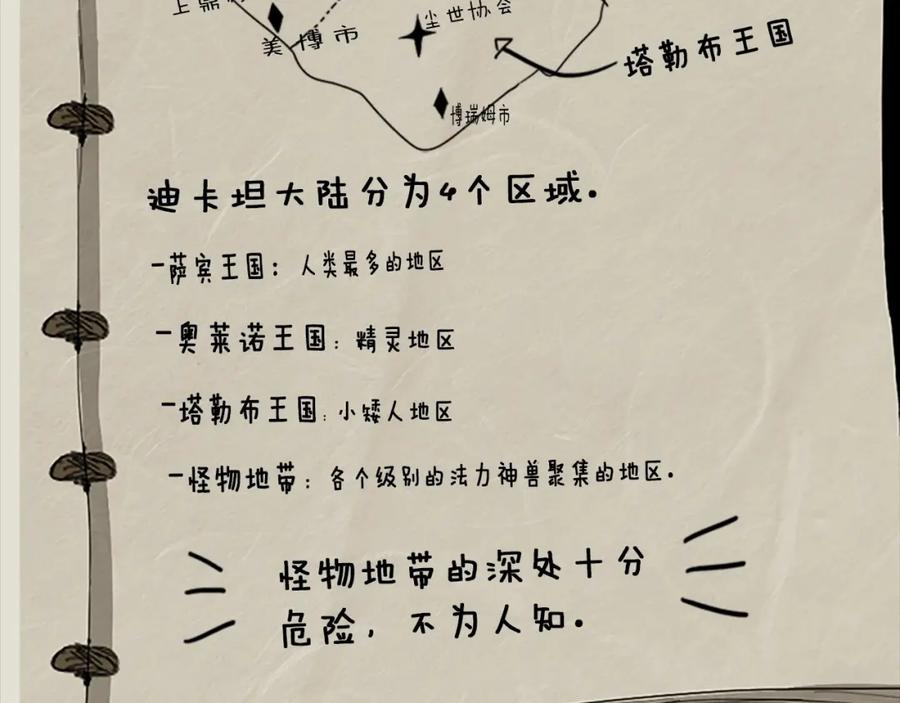 上鼎
尘世协会
美博市
塔勒布王国
博瑞姆市
迪卡坦大陆分为4个区域.
-萨宾王国: 人类最多的地区
-奥莱诺王国: 精灵地区
-塔勒布王国: 小矮人地区
-怪物地带: 各个级别的法力神兽聚集的地区.
怪物地带的深处十分
危险, 不为人知.